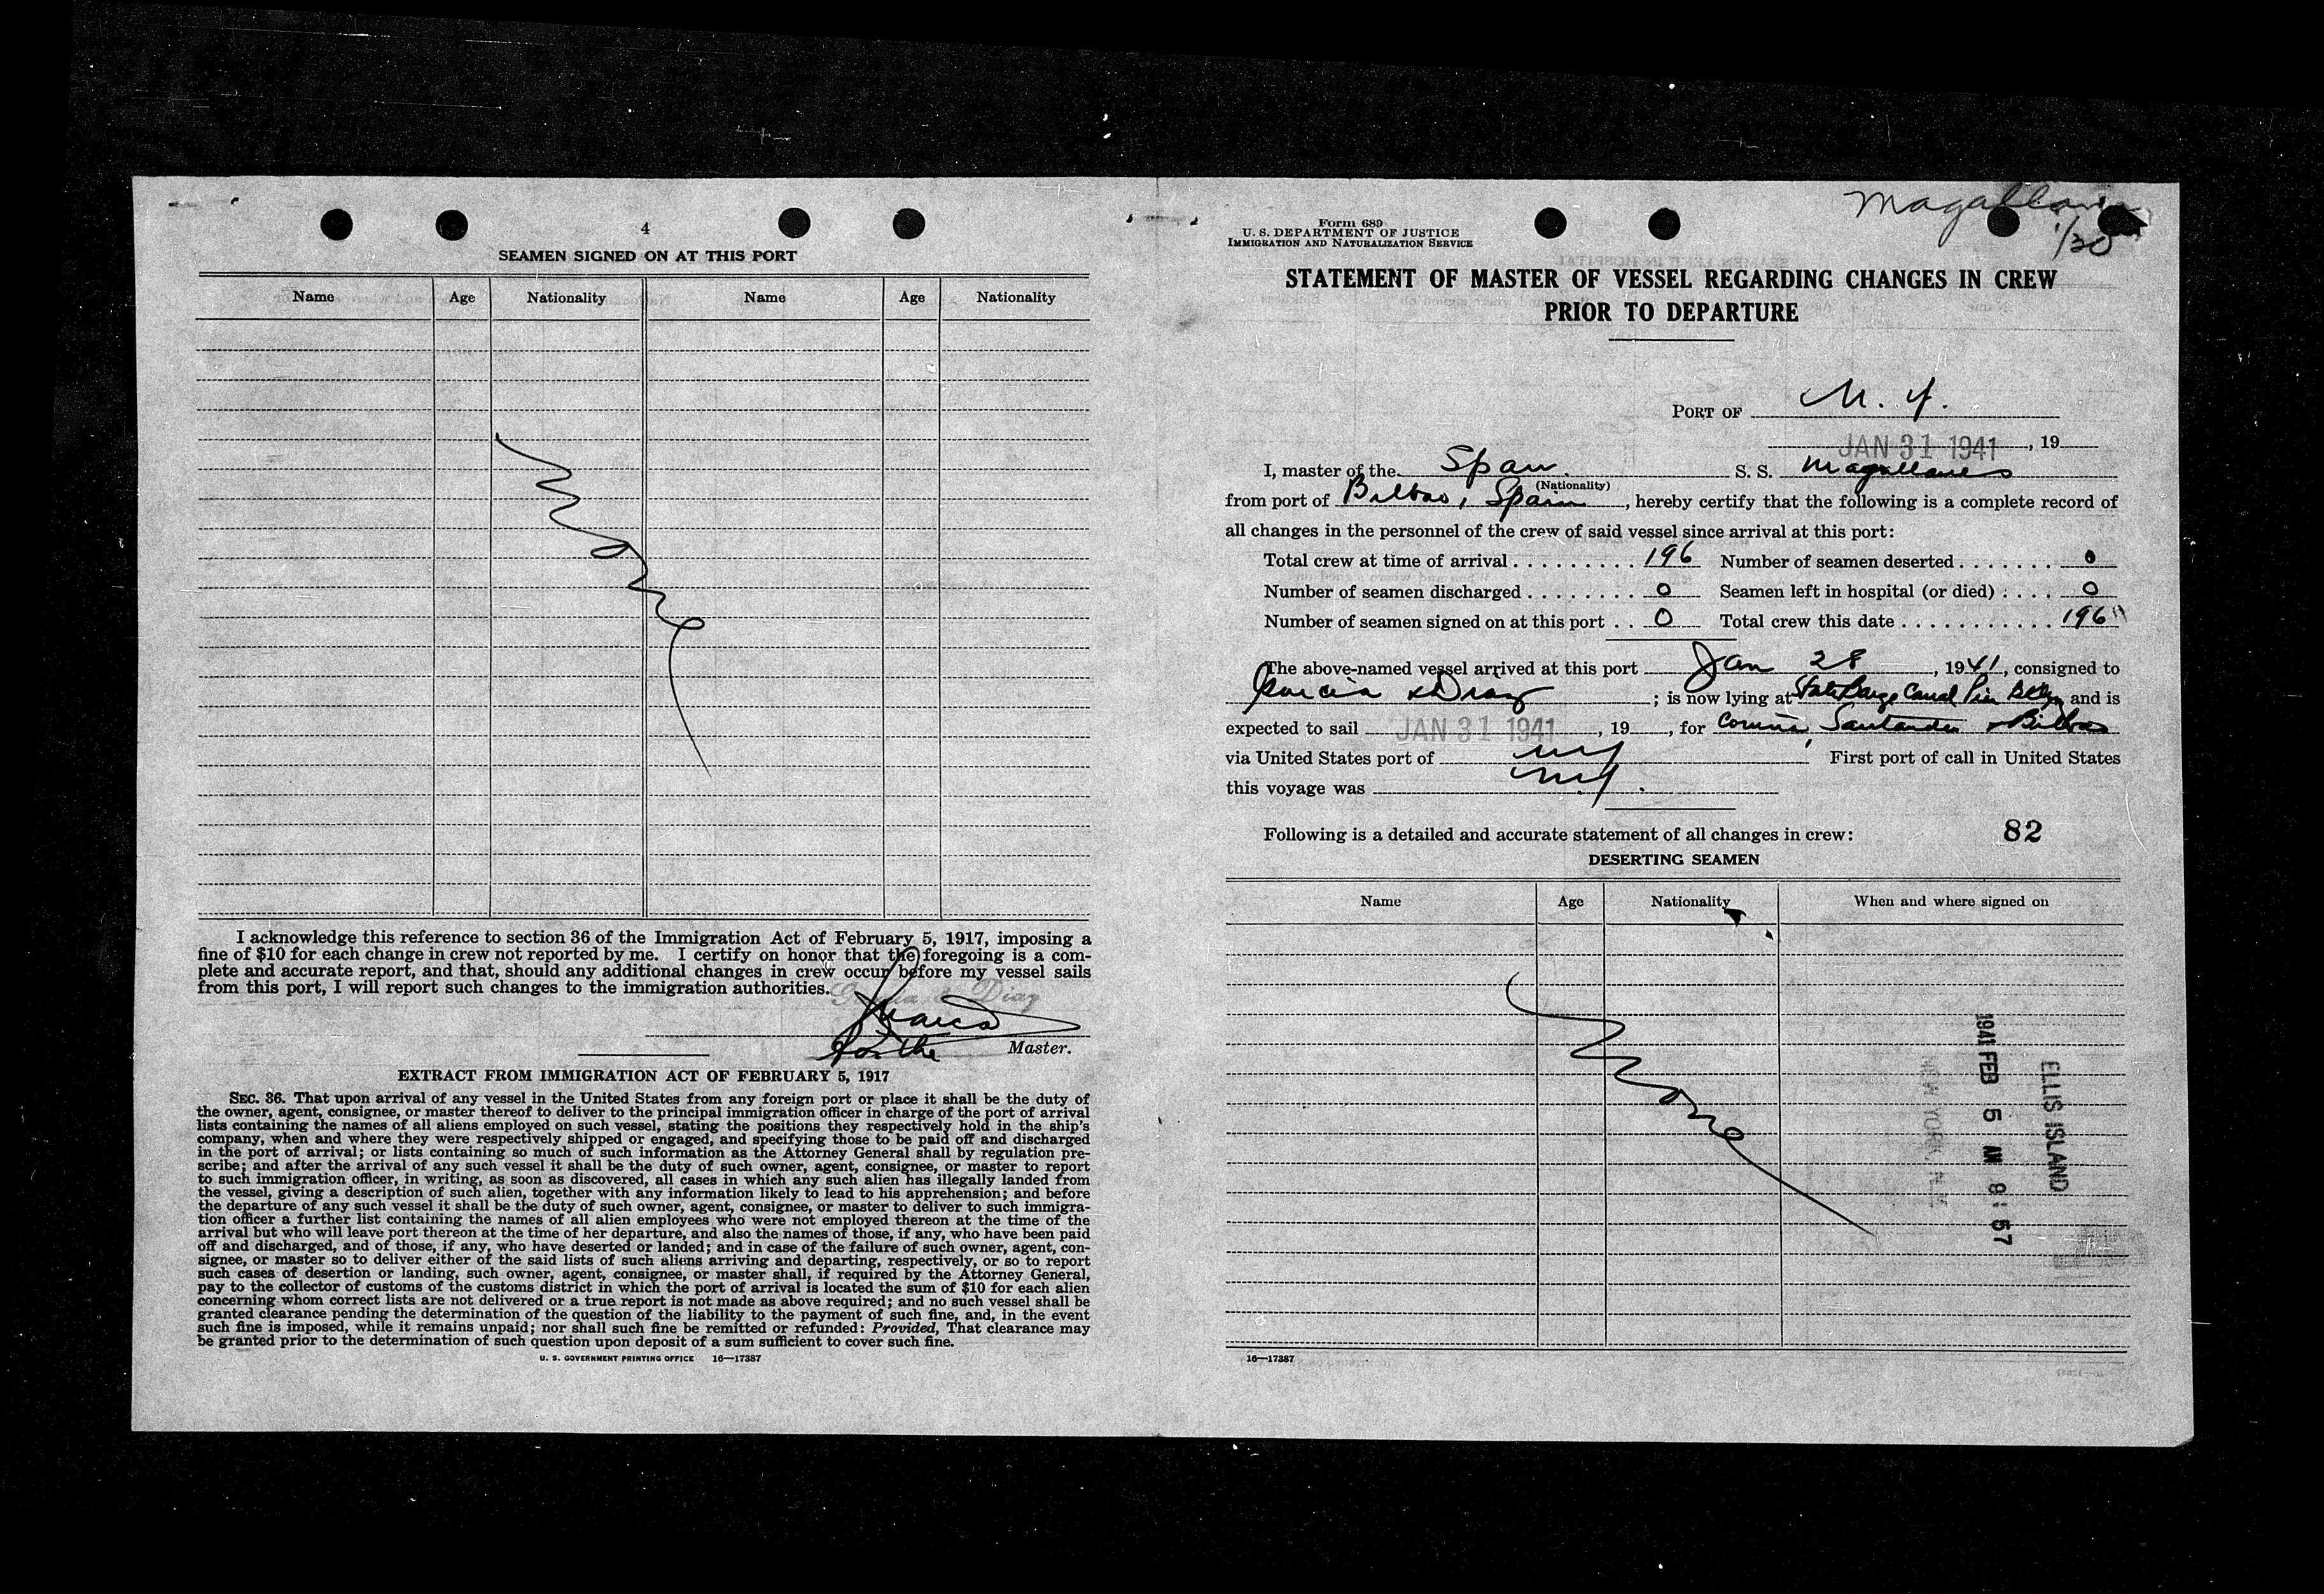 4
SEAMEN SIGNED ON AT THIS PORT
Name Age Nationality Name Age Nationality
None
I acknowledge this reference to section 36 of the Immigration Act of February 5, 1917, imposing a
fine of $10 for each change in crew not reported by me. I certify on honor that the foregoing is a com-
plete and accurate report, and that, should any additional changes in crew occur before my vessel sails
from this port, I will report such changes to the immigration authorities.
Garcia & Diaz
For the Master.
EXTRACT FROM IMMIGRATION ACT OF FEBRUARY 5, 1917
SEC. 36. That upon arrival of any vessel in the United States from any foreign port or place it shall be the duty of
the owner, agent, consignee, or master thereof to deliver to the principal immigration officer in charge of the port of arrival
lists containing the names of all aliens employed on such vessel, stating the positions they respectively hold in the ship's
company, when and where they were respectively shipped or engaged, and specifying those to be paid off and discharged
in the port of arrival; or lists containing so much of such information as the Attorney General shall by regulation pre-
scribe; and after the arrival of any such vessel it shall be the duty of such owner, agent, consignee, or master to report
to such immigration officer, in writing, as soon as discovered, all cases in which any such alien has illegally landed from
the vessel, giving a description of such alien, together with any information likely to lead to his apprehension; and before
the departure of any such vessel it shall be the duty of such owner, agent, consignee, or master to deliver to such immigra-
tion officer a further list containing the names of all alien employees who were not employed thereon at the time of the
arrival but who will leave port thereon at the time of her departure, and also the names of those, if any, who have been paid
off and discharged, and of those, if any, who have deserted or landed; and in case of the failure of such owner, agent, con-
signee, or master so to deliver either of the said lists of such aliens arriving and departing, respectively, or so to report
such cases of desertion or landing, such owner, agent, consignee, or master shall, if required by the Attorney General,
pay to the collector of customs of the customs district in which the port of arrival is located the sum of $10 for each alien
concerning whom correct lists are not delivered or a true report is not made as above required; and no such vessel shall be
granted clearance pending the determination of the question of the liability to the payment of such fine, and, in the event
such fine is imposed, while it remains unpaid; nor shall such fine be remitted or refunded: Provided, That clearance may
be granted prior to the determination of such question upon deposit of a sum sufficient to cover such fine.
U. S. GOVERNMENT PRINTING OFFICE 16—17387
Magallanes
1/30
Form 689
U. S. DEPARTMENT OF JUSTICE
IMMIGRATION AND NATURALIZATION SERVICE
STATEMENT OF MASTER OF VESSEL REGARDING CHANGES IN CREW
PRIOR TO DEPARTURE
PORT OF N. Y.
JAN 31 1941, 19
I, master of the Span. S. S. Magallanes
(Nationality)
from port of Bilbao, Spain, hereby certify that the following is a complete record of
all changes in the personnel of the crew of said vessel since arrival at this port:
Total crew at time of arrival . . . . . . . . . 196 Number of seamen deserted . . . . . . . 0
Number of seamen discharged . . . . . . . . 0 Seamen left in hospital (or died) . . . . 0
Number of seamen signed on at this port . . 0 Total crew this date . . . . . . . . . . . 196
The above-named vessel arrived at this port Jan 28, 1941, consigned to
Garcia & Diaz; is now lying at State Barge Canal Pier Bklyn and is
expected to sail JAN 31 1941, 19, for Coruña, Santander & Bilbao
via United States port of NY First port of call in United States
this voyage was NY.
Following is a detailed and accurate statement of all changes in crew: 82
DESERTING SEAMEN
Name Age Nationality When and where signed on
None
ELLIS ISLAND
1941 FEB 5 AM 9:57
NEW YORK, N.Y.
16—17387